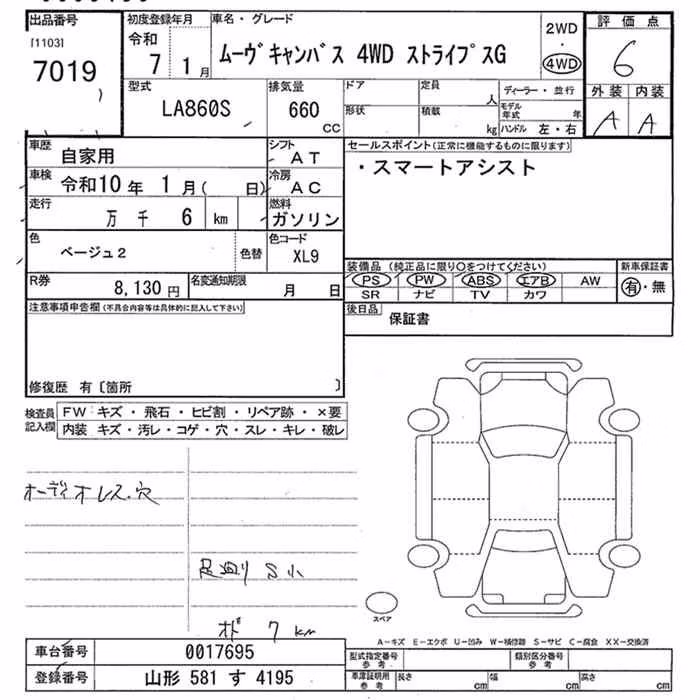 出品番号
[1103]
7019
初度登録年月
令和
7 1月
車名・グレード
ムーヴキャンバス 4WD ストライプスG
2WD
・
4WD
評価点
6
外装 内装
A A
型式
LA860S
排気量
660
CC
ドア
定員
人
形状
積載
kg
ディーラー・並行
モデル年式 年
ハンドル 左・右
車歴
自家用
シフト
AT
車検
令和10年 1月( 日)
冷房
AC
走行
万 千 6 km
燃料
ガソリン
色
ベージュ2
色替
色コード
XL9
R券
8,130 円
名変通知期限
月 日
セールスポイント(正常に機能するものに限ります)
・スマートアシスト
装備品 (純正品に限り○をつけてください)
PS PW ABS エアB AW
SR ナビ TV カワ
新車保証書
有・無
後日品
保証書
注意事項申告欄(不具合内容等は具体的に記入して下さい)
修復歴 有〔箇所 〕
検査員記入欄
FW キズ・飛石・ヒビ割・リペア跡・×要
内装 キズ・汚レ・コゲ・穴・スレ・キレ・破レ
オーディオレス・穴
足廻り S小
オド 7 km
スペア
A-キズ E-エクボ U-凹み W-補修跡 S-サビ C-腐食 XX-交換済
車台番号
0017695
登録番号
山形 581 す 4195
型式指定番号
参考
類別区分番号
参考
車庫証明用
参考
長さ cm
幅 cm
高さ cm